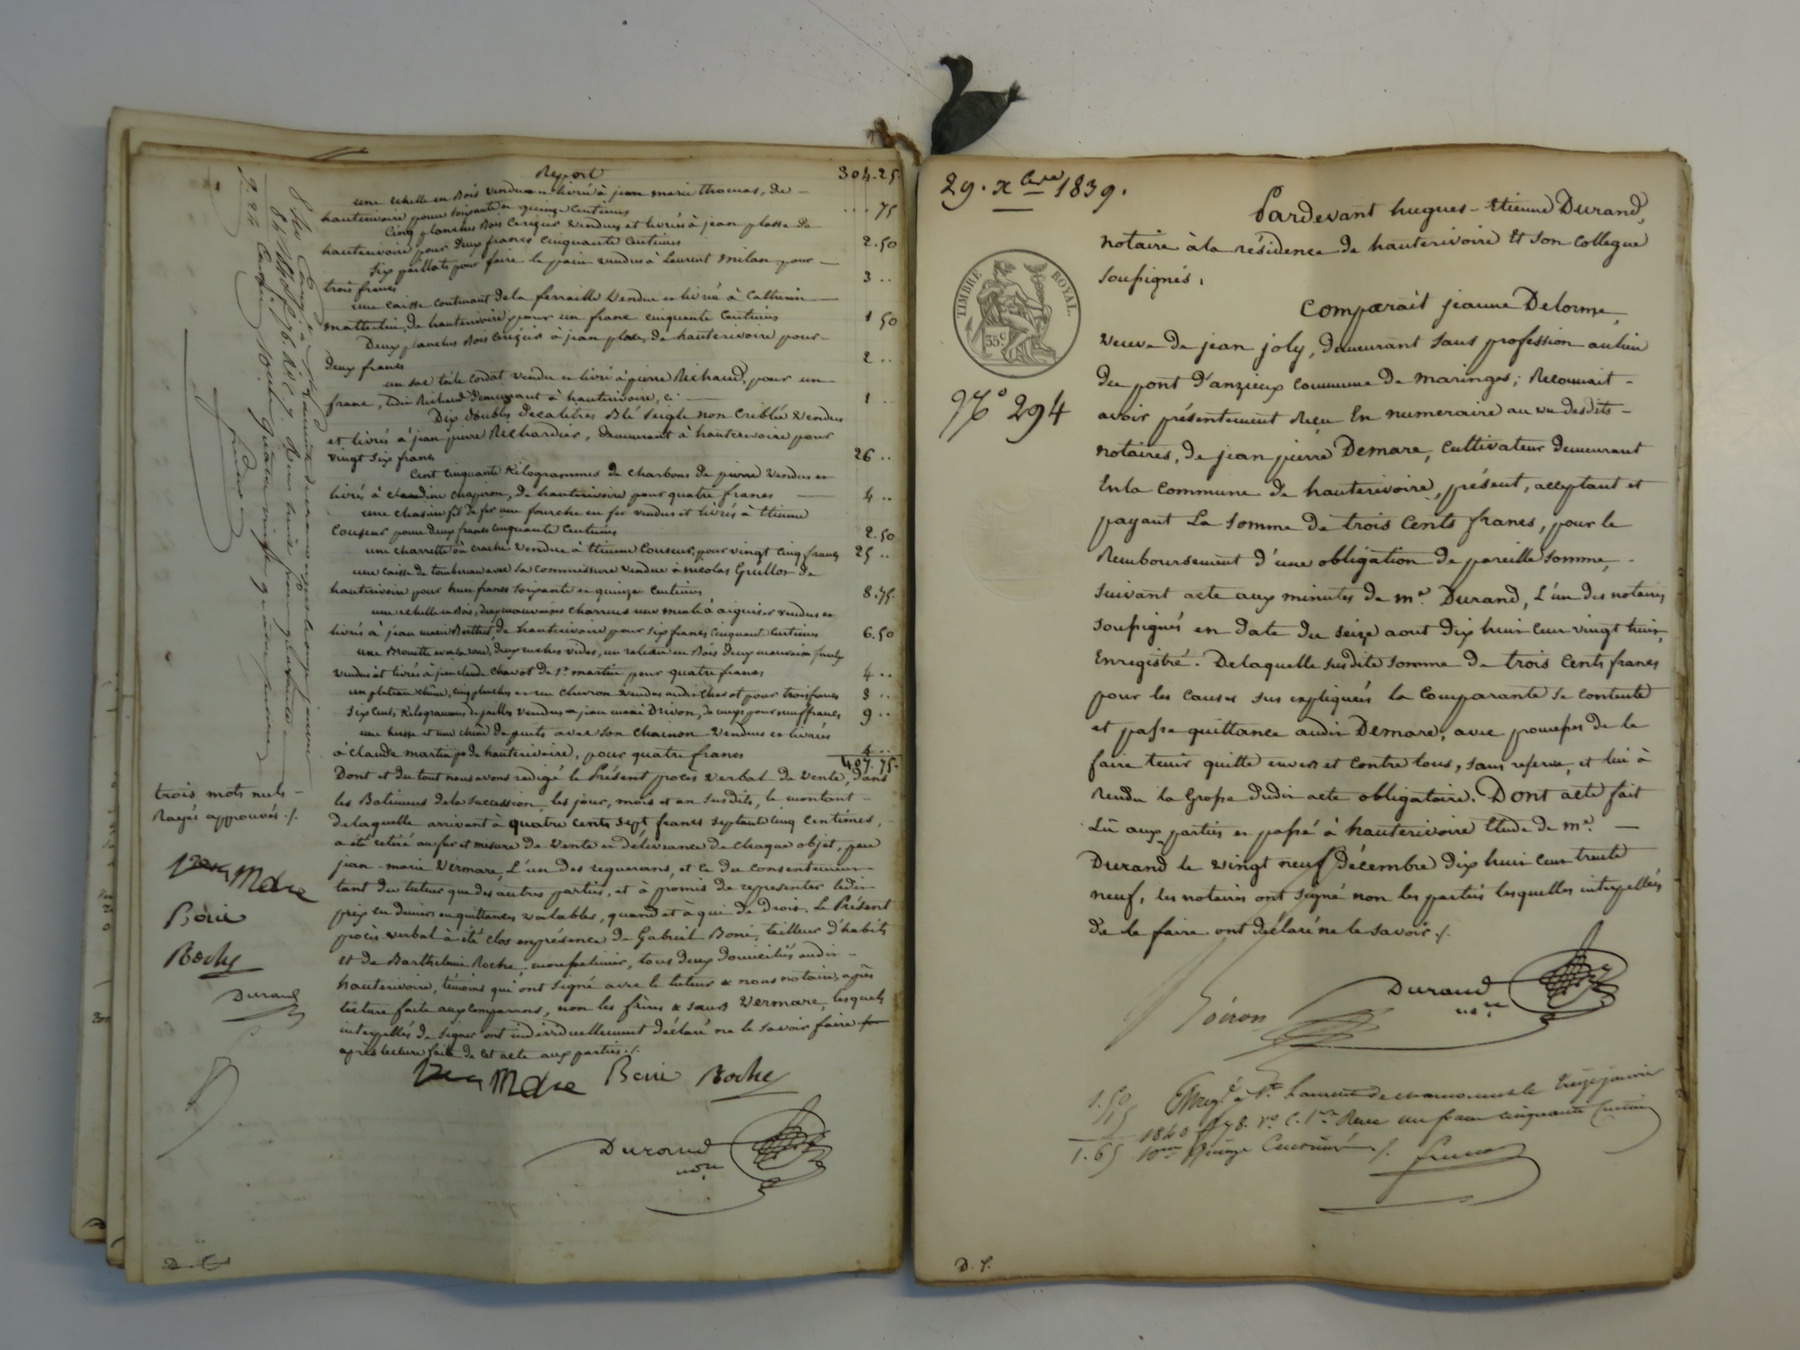 Report 304.25
une echelle en Bois vendue et livrée à jean marie thomas, de -
hauterivoire pour soixante et quinze centimes .... 75
Cinq planches Bois Cerisier vendues et livrées à jean plasse de
hauterivoire pour deux francs cinquante centimes 2.50
Six paillats pour faire le pain vendus à Laurent milan pour -
trois francs 3 ..
une caisse contenant de la ferraille vendue et livrée à Catherin
de hauterivoire pour un franc cinquante centimes 1 50
Deux planches Bois Cerisier à jean place, de hauterivoire pour -
deux francs 2 ..
un sac toile cordat vendu et livré à pierre Richaud, pour un -
franc, ledit Richaud demeurant à hauterivoire, ci 1 ..
Dix doubles Décalitres Blé Seigle non Criblé vendus
et livrés à jean pierre Richardier, demeurant à hauterivoire pour
vingt six francs 26 ..
Cent cinquante Kilogrammes de charbons de pierre vendus et
livrés à claudine chapiron, de hauterivoire pour quatre francs 4 ..
une fil de fer une fourche en fer vendus et livrés à Etienne
Couseur pour deux francs cinquante centimes 2.50
une charrette vendue à Etienne Couseur, pour vingt cinq francs 25 ..
une caisse de tombereau avec sa commissure vendue à nicolas Grillot de
hauterivoire pour huit francs soixante et quinze centimes 8.75
une echelle en Bois, deux mauvaises charrues une meule à aiguiser vendues et
livrés à jean marie Berthet, de hauterivoire pour six francs cinquante centimes 6.50
une Brouette avec la roue, deux ruches vides, un rateau en Bois deux mauvaises faulx
vendus et livrés à jean claude Chavot de St. martin pour quatre francs 4 ..
un plateau chêne, cinq planches et un chevron vendus audit Chavot pour trois francs 3 ..
Six Cents Kilogrammes de pailles vendues à jean marie Drivon, de meys pour neuf francs 9 ..
une herse et une chaine de puits avec son chainon vendues et livrées
à Claude martin de hauterivoire, pour quatre francs 4 ..
407.75.
Dont et du tout nous avons rédigé le Présent procès verbal de vente, dans
les Batiments de la succession, les jour, mois et an susdits, le montant -
de laquelle arrivant à quatre cents sept francs septante cinq centimes,
a été retiré au fur et mesure de vente et délivrance de chaque objet, par
jean-marie Vermare, L'un des requérans, et ce du consentement
tant du tuteur que des autres parties, et a promis de représenter ledit
prix en deniers ou quittances valables, quand et à qui de Droit. Le Présent
procès verbal a été clos en présence de Gabriel Boni, tailleur d'habits
et de Barthelemi Roche, tous deux domiciliés audit -
hauterivoire, témoins qui ont signé avec le tuteur & nous notaire, après
lecture faite aux comparans, non les frères & sœurs Vermare, lesquels
interpellés de signer ont individuellement déclaré ne le savoir faire
après lecture faite de cet acte aux parties ./.
Roche
Durand
nore
trois mots nuls -
Rayés approuvés ./.
Roche
Durand
29. Xbre 1839.
TIMBRE ROYAL
35c
No 294
Pardevant hugues-Etienne Durand,
notaire à la résidence de hauterivoire Et son collegue
soussignés;
Comparait jeanne Delorme,
veuve de jean joly, demeurant sans profession au lieu
du pont d'anzieux commune de maringes; Reconnait -
avoir présentement Reçu En numeraire au vu desdits -
notaires, de jean pierre Demare, Cultivateur demeurant
En la Commune de hauterivoire, présent, acceptant et
payant La Somme de trois Cents francs, pour le
Remboursement d'une obligation de pareille Somme,
suivant acte aux minutes de me. Durand, L'un des notaires
soussignés en date du seize aout dix huit cent vingt huit,
Enregistré. De laquelle susdite somme de trois Cents francs
pour les causes sus expliquées la Comparante se contente
et passe quittance audit Demare, avec promesse de le
faire tenir quitte envers et contre tous, sans reserve, et lui à
Rendu la Grosse dudit acte obligatoire. Dont acte fait
Lû aux parties et passé à hauterivoire Etude de me. -
Durand le vingt neuf Décembre dix huit cent trente
neuf, les notaires ont signé non les parties lesquelles interpellées
de le faire ont déclaré ne le savoir ./.
Durand
nore
1.50
15
1.65
Enregé à St. Laurent de chamousset le treize janvier
1840 fo 78. Vo C. 1re Reçu un franc cinquante centimes
10me quinze Centimes ./.